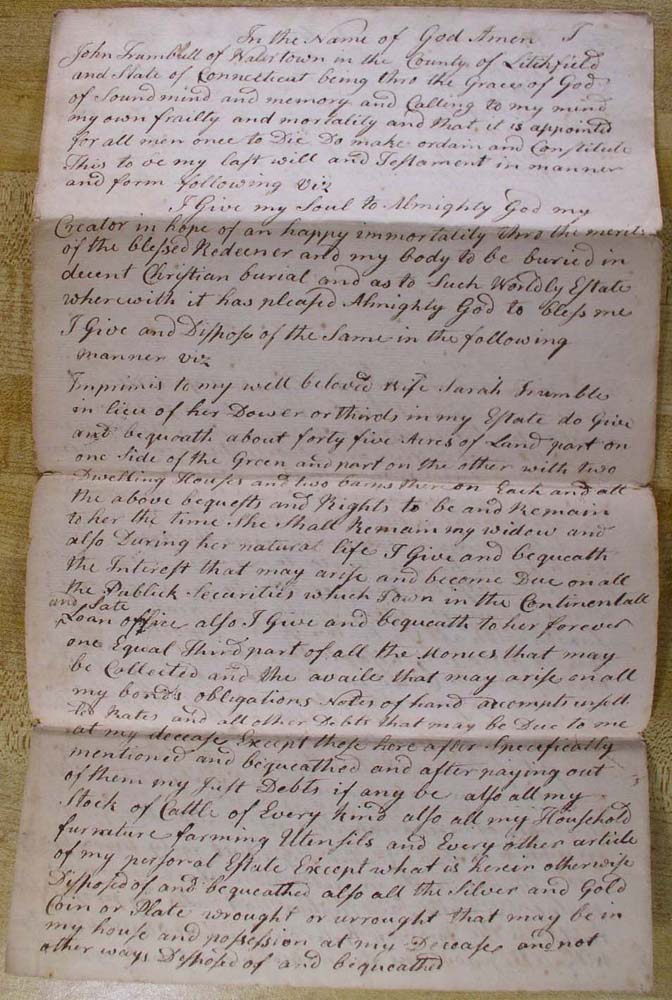 In the Name of God Amen I
John Trumbull of Watertown in the County of Litchfield
and State of Connecticut being thro the Grace of God
of Sound mind and memory and Calling to my mind
my own frailty and mortality and that it is appointed
for all men once to Die Do make ordain and Constitute
This to be my last will and Testament in manner
and form following viz
I Give my Soul to Almighty God my
Creator in hope of an happy immortality thro the merits
of the blessed Redeemer and my body to be buried in
decent Christian burial and as to Such Worldly Estate
wherewith it has pleased Almighty God to bless me
I Give and Dispose of the Same in the following
manner viz
Imprimis to my well beloved Wife Sarah Trumble
in lieu of her Dower or thirds in my Estate do Give
and bequeath about forty five Acres of Land part on
one Side of the Green and part on the other with two
Dwelling Houses and two barns thereon Each and all
the above bequests and Rights to be and Remain
to her the time She Shall Remain my widow and
also During her natural life I Give and bequeath
the Interest that may arise and become Due on all
the Publick Securities which I own in the Continentall
and State
Loan office also I Give and bequeath to her forever
one Equal Third part of all the Monies that may
be Collected and the availe that may arise on all
my bonds obligations Notes of hand accompts
Rates and all other Debts that may be Due to me
at my decease Except those here after Specifically
mentioned and bequeathed and after paying out
of them my Just Debts if any be also all my
Stock of Cattle of Every kind also all my Household
furnature farming Utensils and Every other article
of my personal Estate Except what is herein otherwise
Disposed of and bequeathed also all the Silver and Gold
Coin or Plate wrought or urrought that may be in
my house and possession at my Decease and not
other ways Disposed of and bequeathed